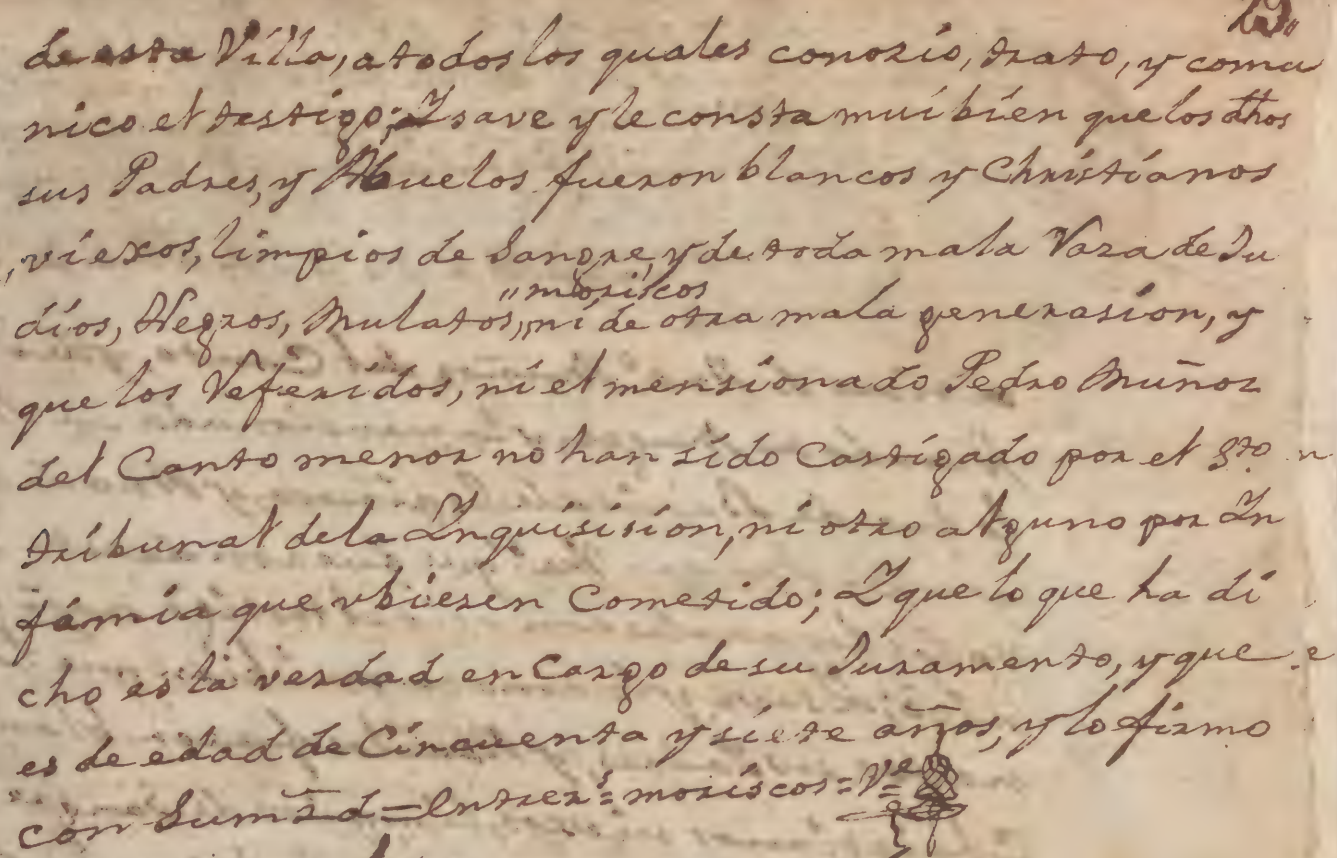 29
de esta Villa, a todos los quales conozio, trato, y comu
nico el testigo; Y save y le consta mui bien que los dhos
sus Padres, y Abuelos fueron blancos y Christianos
viexos, limpios de Sangre, y de toda mala Raza de Ju
"moriscos
dios, Negros, Mulatos, ni de otra mala generasion, y
que los Referidos, ni el mensionado Pedro Muñoz
del Canto menor no han sido Castigado por el Sto
tribunal de la Inquisision, ni otro alguno por In
famia que vbiesen Cometido; Y que lo que ha di
cho es la verdad en Cargo de su Juramento, y que
es de edad de Cincuenta y siete años, y lo firmo
con Sumrd = Entrers = moriscos = Ve